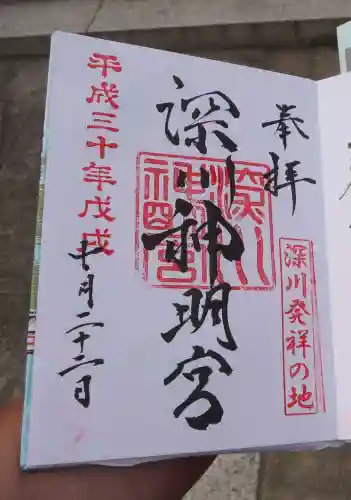 奉拝
深川発祥の地
深川神明宮
平成三十年戊戌
十月二十二日